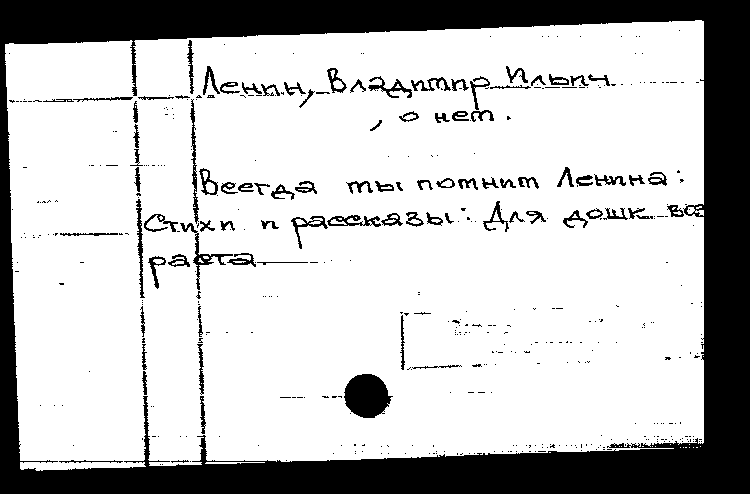 Ленин, Владимир Ильич
, о нем.
Всегда ты помнит Ленина:
Стихи и рассказы: Для дошк. воз
раста.